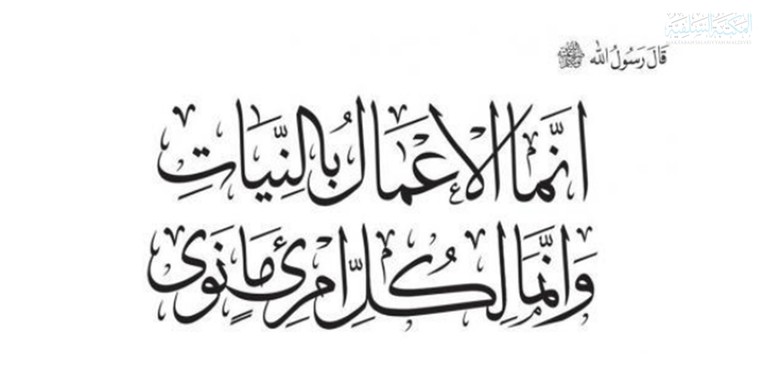 المكتبة السلفية
قَالَ رَسُولُ الله ﷺ
انَّمَا الاعْمَالُ بالنِّيَّاتِ
وَانَّمَا لِكُلِّ امْرِئٍ مَا نَوَى